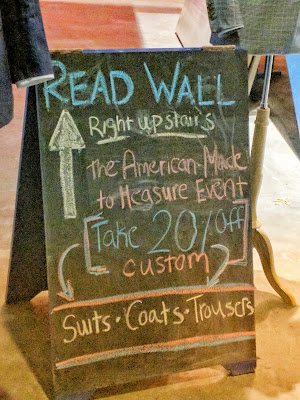 READ WALL
Right upstairs
The American-Made
to Measure Event
Take 20% Off
custom
Suits · Coats · Trousers